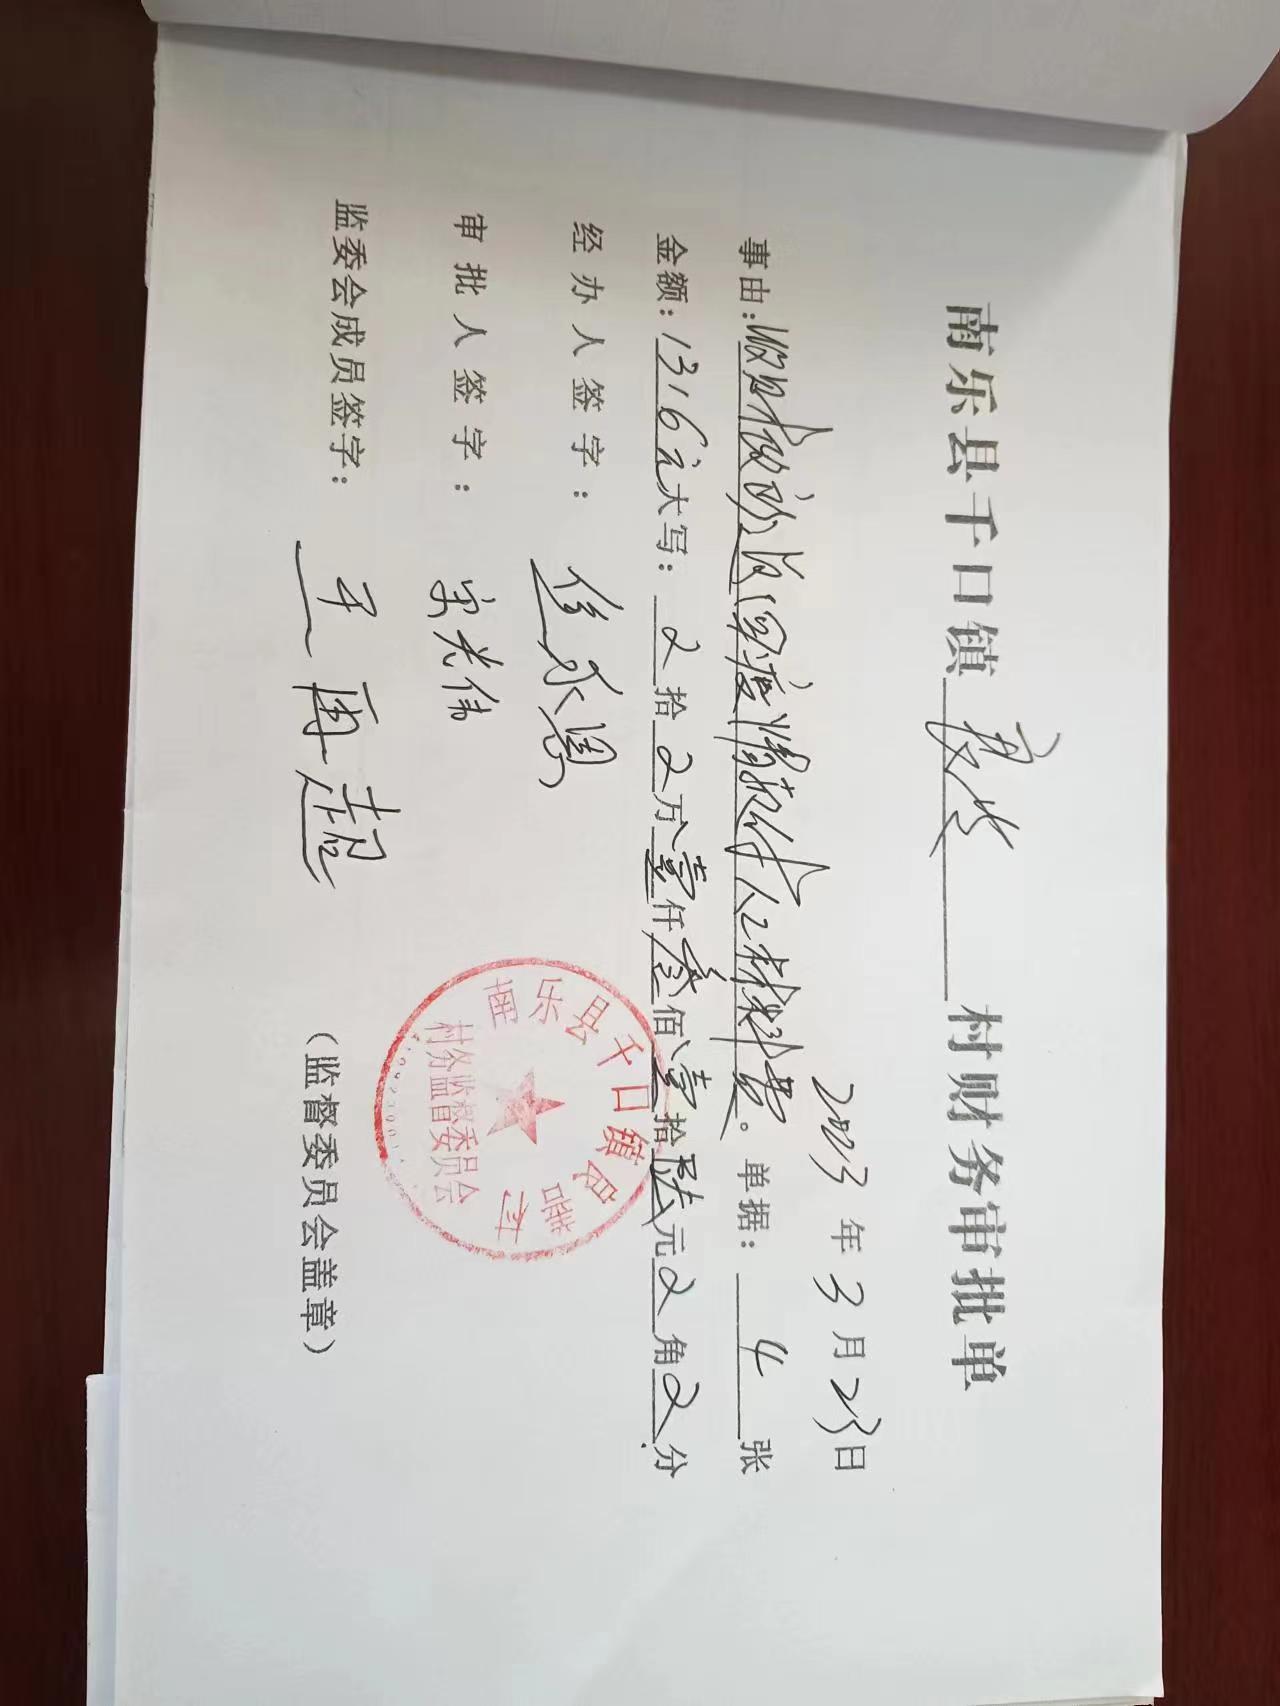 南乐县千口镇 村财务审批单
2023年3月23日
事由: 疫情 人工材料费。 单据: 4 张
金额: 1316元大写: 0拾0万壹仟叁佰壹拾陆元0角0分
经办人签字:
审批人签字: 宋光伟
监委会成员签字: 王再超
(监督委员会盖章)
南乐县千口镇 村
村务监督委员会